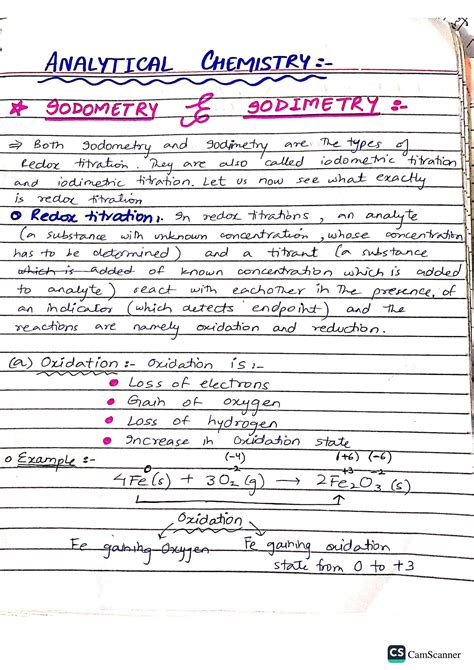 ANALYTICAL CHEMISTRY :-
★ IODOMETRY & IODIMETRY :-
⇒ Both Iodometry and Iodimetry are The types of
Redox titration. They are also called iodometric titration
and iodimetric titration. Let us now see what exactly
is redox titration
Redox titration:. In redox titrations, an analyte
(a substance with unknown concentration, whose concentration
has to be determined) and a titrant (a substance
which is added of known concentration which is added
to analyte) react with eachother in the presence, of
an indicator (which detects endpoint) and the
reactions are namely oxidation and reduction.
(a) Oxidation :- Oxidation is :-
• Loss of electrons
• Gain of oxygen
• Loss of hydrogen
• Increase in Oxidation state
o Example :- (-4) (+6) (-6)
0 -2 +3 -2
4Fe(s) + 3O2(g) → 2Fe2O3(s)
Oxidation
Fe gaining Oxygen Fe gaining oxidation
state from 0 to +3
CS CamScanner